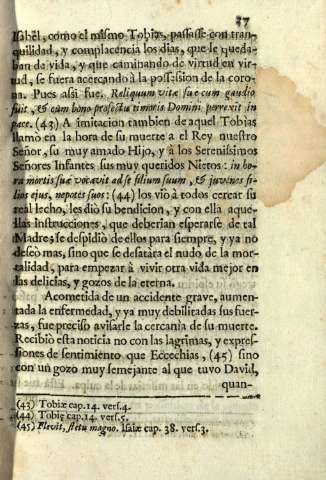 37
Isabèl, como el mismo Tobias, passasse con tran-
quilidad, y complacencia los dias, que le queda-
ban de vida, y que caminando de virtud en vir-
tud, se fuera acercando à la possession de la coro-
na. Pues assi fue. Reliquum vitæ suæ cum gaudio
fuit, & cum bono profectu timoris Domini perrexit in
pace. (43) A imitacion tambien de aquel Tobias
llamò en la hora de su muerte a el Rey nuestro
Señor, su muy amado Hijo, y à los Serenissimos
Señores Infantes sus muy queridos Nietos: in ho-
ra mortis suæ vocavit ad se filium suum, & juvenes fi-
lios ejus, nepotes suos: (44) los viò à todos cercar su
real lecho, les diò su bendicion, y con ella aque-
llas instrucciones, que deberian esperarse de tal
Madre; se despidiò de ellos para siempre, y ya no
deseò mas, sino que se desatàra el nudo de la mor-
talidad, para empezar à vivir otra vida mejor en
las delicias, y gozos de la eterna.
Acometida de un accidente grave, aumen-
tada la enfermedad, y ya muy debilitadas sus fuer-
zas, fue preciso avisarle la cercanìa de su muerte.
Recibiò esta noticia no con las lagrimas, y expre-
siones de sentimiento que Eccechias, (45) sino
con un gozo muy semejante al que tuvo David,
quan-
(43) Tobiæ cap. 14. vers. 4.
(44) Tobiæ cap. 14. vers. 5.
(45) Flevit, fletu magno. Isaiæ cap. 38. vers. 3.